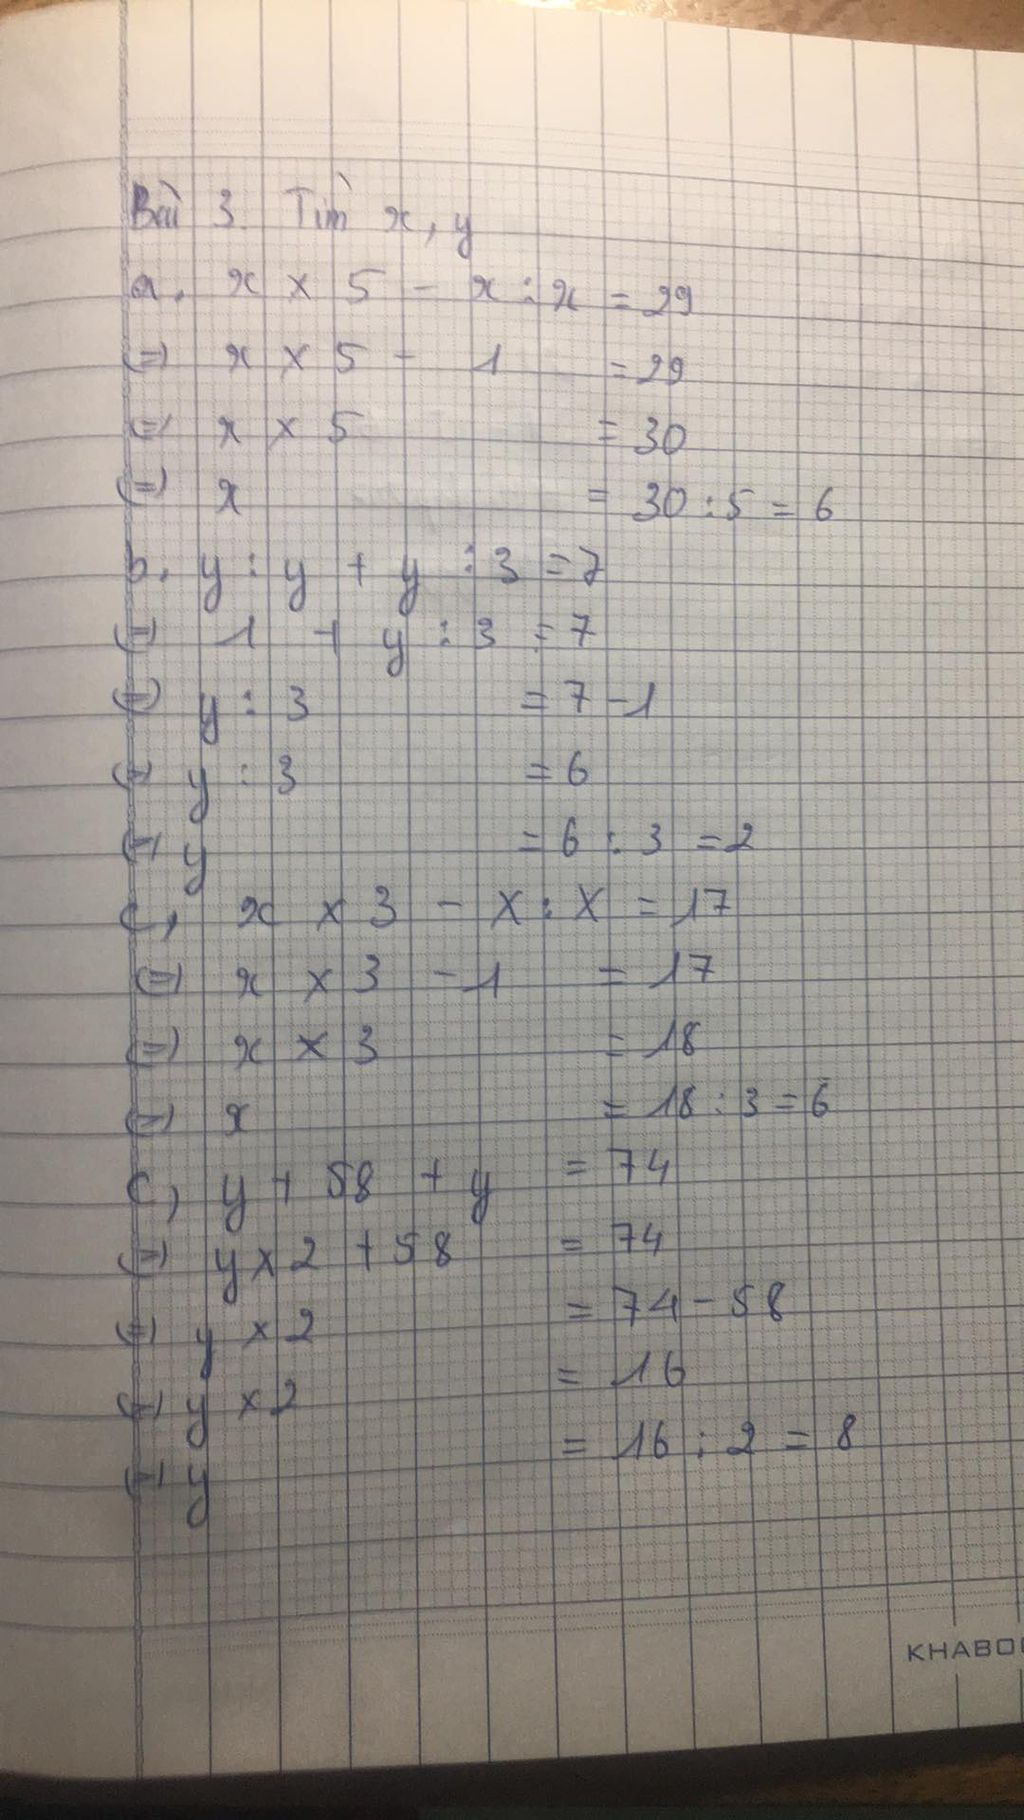 Bài 3. Tìm x, y
a. x × 5 - x : x = 29
(=) x × 5 - 1 = 29
(=) x × 5 = 30
(=) x = 30 : 5 = 6
b. y : y + y : 3 = 7
(=) 1 + y : 3 = 7
(=) y : 3 = 7 - 1
(=) y : 3 = 6
(=) y = 6 : 3 = 2
c, x × 3 - X : X = 17
(=) x × 3 - 1 = 17
(=) x × 3 = 18
(=) x = 18 : 3 = 6
c, y + 58 + y = 74
(=) y × 2 + 58 = 74
(=) y × 2 = 74 - 58
(=) y × 2 = 16
(=) y = 16 : 2 = 8